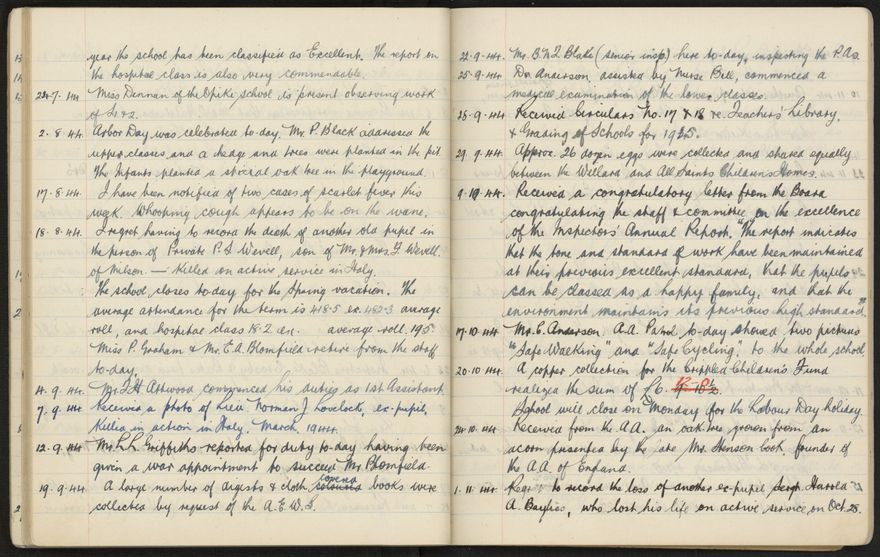 year the school has been classified as Excellent. The report on
the hospital class is also very commendable.
24-7.44 Miss Dennan of the Opike school is present observing work
of S1&2.
2.8.44. Arbor Day was celebrated to-day. Mr. P. Black addressed the
upper classes and a hedge and trees were planted in the pit.
The Infants planted a special oak tree in the playground.
17.8.44. I have been notified of two cases of scarlet fever this
week. Whooping cough appears to be on the wane.
18.8.44. I regret having to record the death of another old pupil in
the person of Private P. S Wevell, son of Mr. & Mrs. F. Wevell.
of Milson. — Killed on active service in Italy.
The school closes to-day for the Spring vacation. The
average attendance for the term is 418.5 ex. 482.3 average
roll, and hospital class 18.2 average roll. 19.5
Miss P. Graham & Mr. E. A. Blomfield retire from the staff
to-day.
4.9.44. Mr. J. H. Attwood commenced his duties as 1st Assistant.
7.9.44. Received a photo of Lieu. Norman J Lovelock, ex-pupil,
killed in action in Italy. March, 1944.
12.9.44 Mr L. L. Griffiths reported for duty to-day having been
given a war appointment to succeed Mr. Blomfield.
19.9.44. A large number of digests & cloth covered
coloured books were
collected by request of the A.E.W.S.
22.9.44. Mr. B. N. T. Blake (senior insp.) here to-day, inspecting the P.As.
25.9.44. Dr. Anderson, assisted by Nurse Bell, commenced a
medical examination of the lower classes.
28-9.44. Received Circulars No. 17 & 18 re. Teachers' Library.
& Grading of Schools for 1945.
29.9.44. Approx. 26 dozen eggs were collected and shared equally
between the Willard and All Saints Children's Homes.
9.10.44. Received a congratulatory letter from the Board
congratulating the staff & committee on the excellence
of the Inspectors' Annual Report. "The report indicates
that the tone and standard of work have been maintained
at their previous excellent standard, that the pupils
can be classed as a happy family, and that the
environment maintains its previous high standard."
17.10.44 Mr. E. Anderson, A.A. Patrol to-day showed two pictures
"Safe Walking" and "Safe Cycling". to the whole school.
20.10.44. A copper collection for the Crippled Children's Fund
realized the sum of £6.
School will close on Monday for the Labour Day holiday.
24.10.44. Received from the A.A. an oak tree grown from an
acorn presented by the late Mr. Stenson Cook founder of
the A.A. of England.
1.11.44. Regret to record the loss of another ex-pupil Sergt Harold
A. Bayliss, who lost his life on active service on Oct. 28.